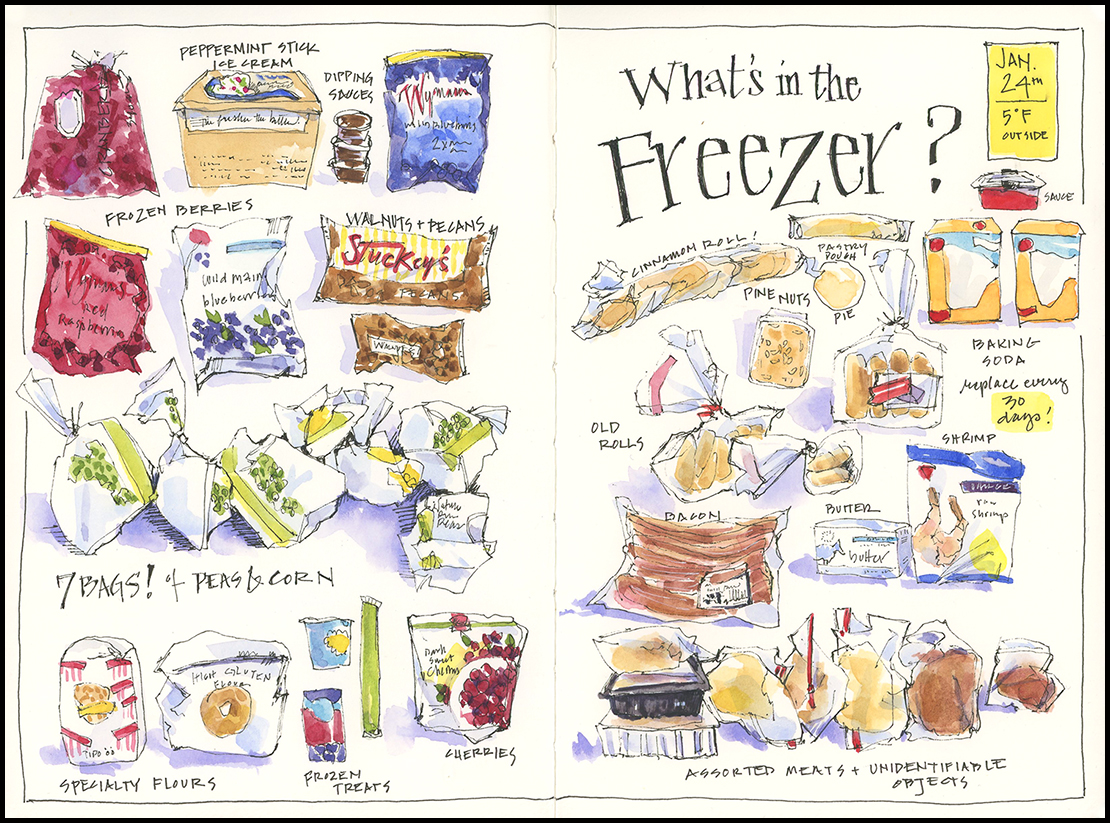 PEPPERMINT STICK
ICE CREAM
DIPPING
SAUCES
The fresher the better!
Wyman's
FROZEN BERRIES
WALNUTS + PECANS
Wyman's
Red
Raspberries
wild maine
blueberries
Stuckey's
PECANS
WALNUTS
7 BAGS! of PEAS & CORN
TIPO '00'
HIGH GLUTEN
FLOUR
Dark
Sweet
Cherries
SPECIALTY FLOURS
FROZEN
TREATS
CHERRIES
What's in the
Freezer?
JAN.
24TH
5°F
OUTSIDE
SAUCE
CINNAMOM ROLL!
PASTRY
DOUGH
PIE
PINE NUTS
BAKING
SODA
replace every
30
days!
OLD
ROLLS
SHRIMP
raw
shrimp
BACON
BUTTER
butter
ASSORTED MEATS + UNIDENTIFIABLE
OBJECTS